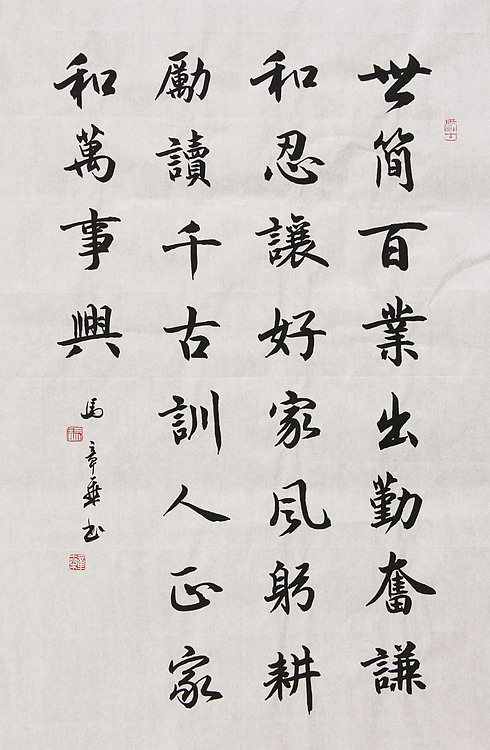 世簡百業出勤奮謙
和忍讓好家風躬耕
勵讀千古訓人正家
和萬事興
馬章乘书